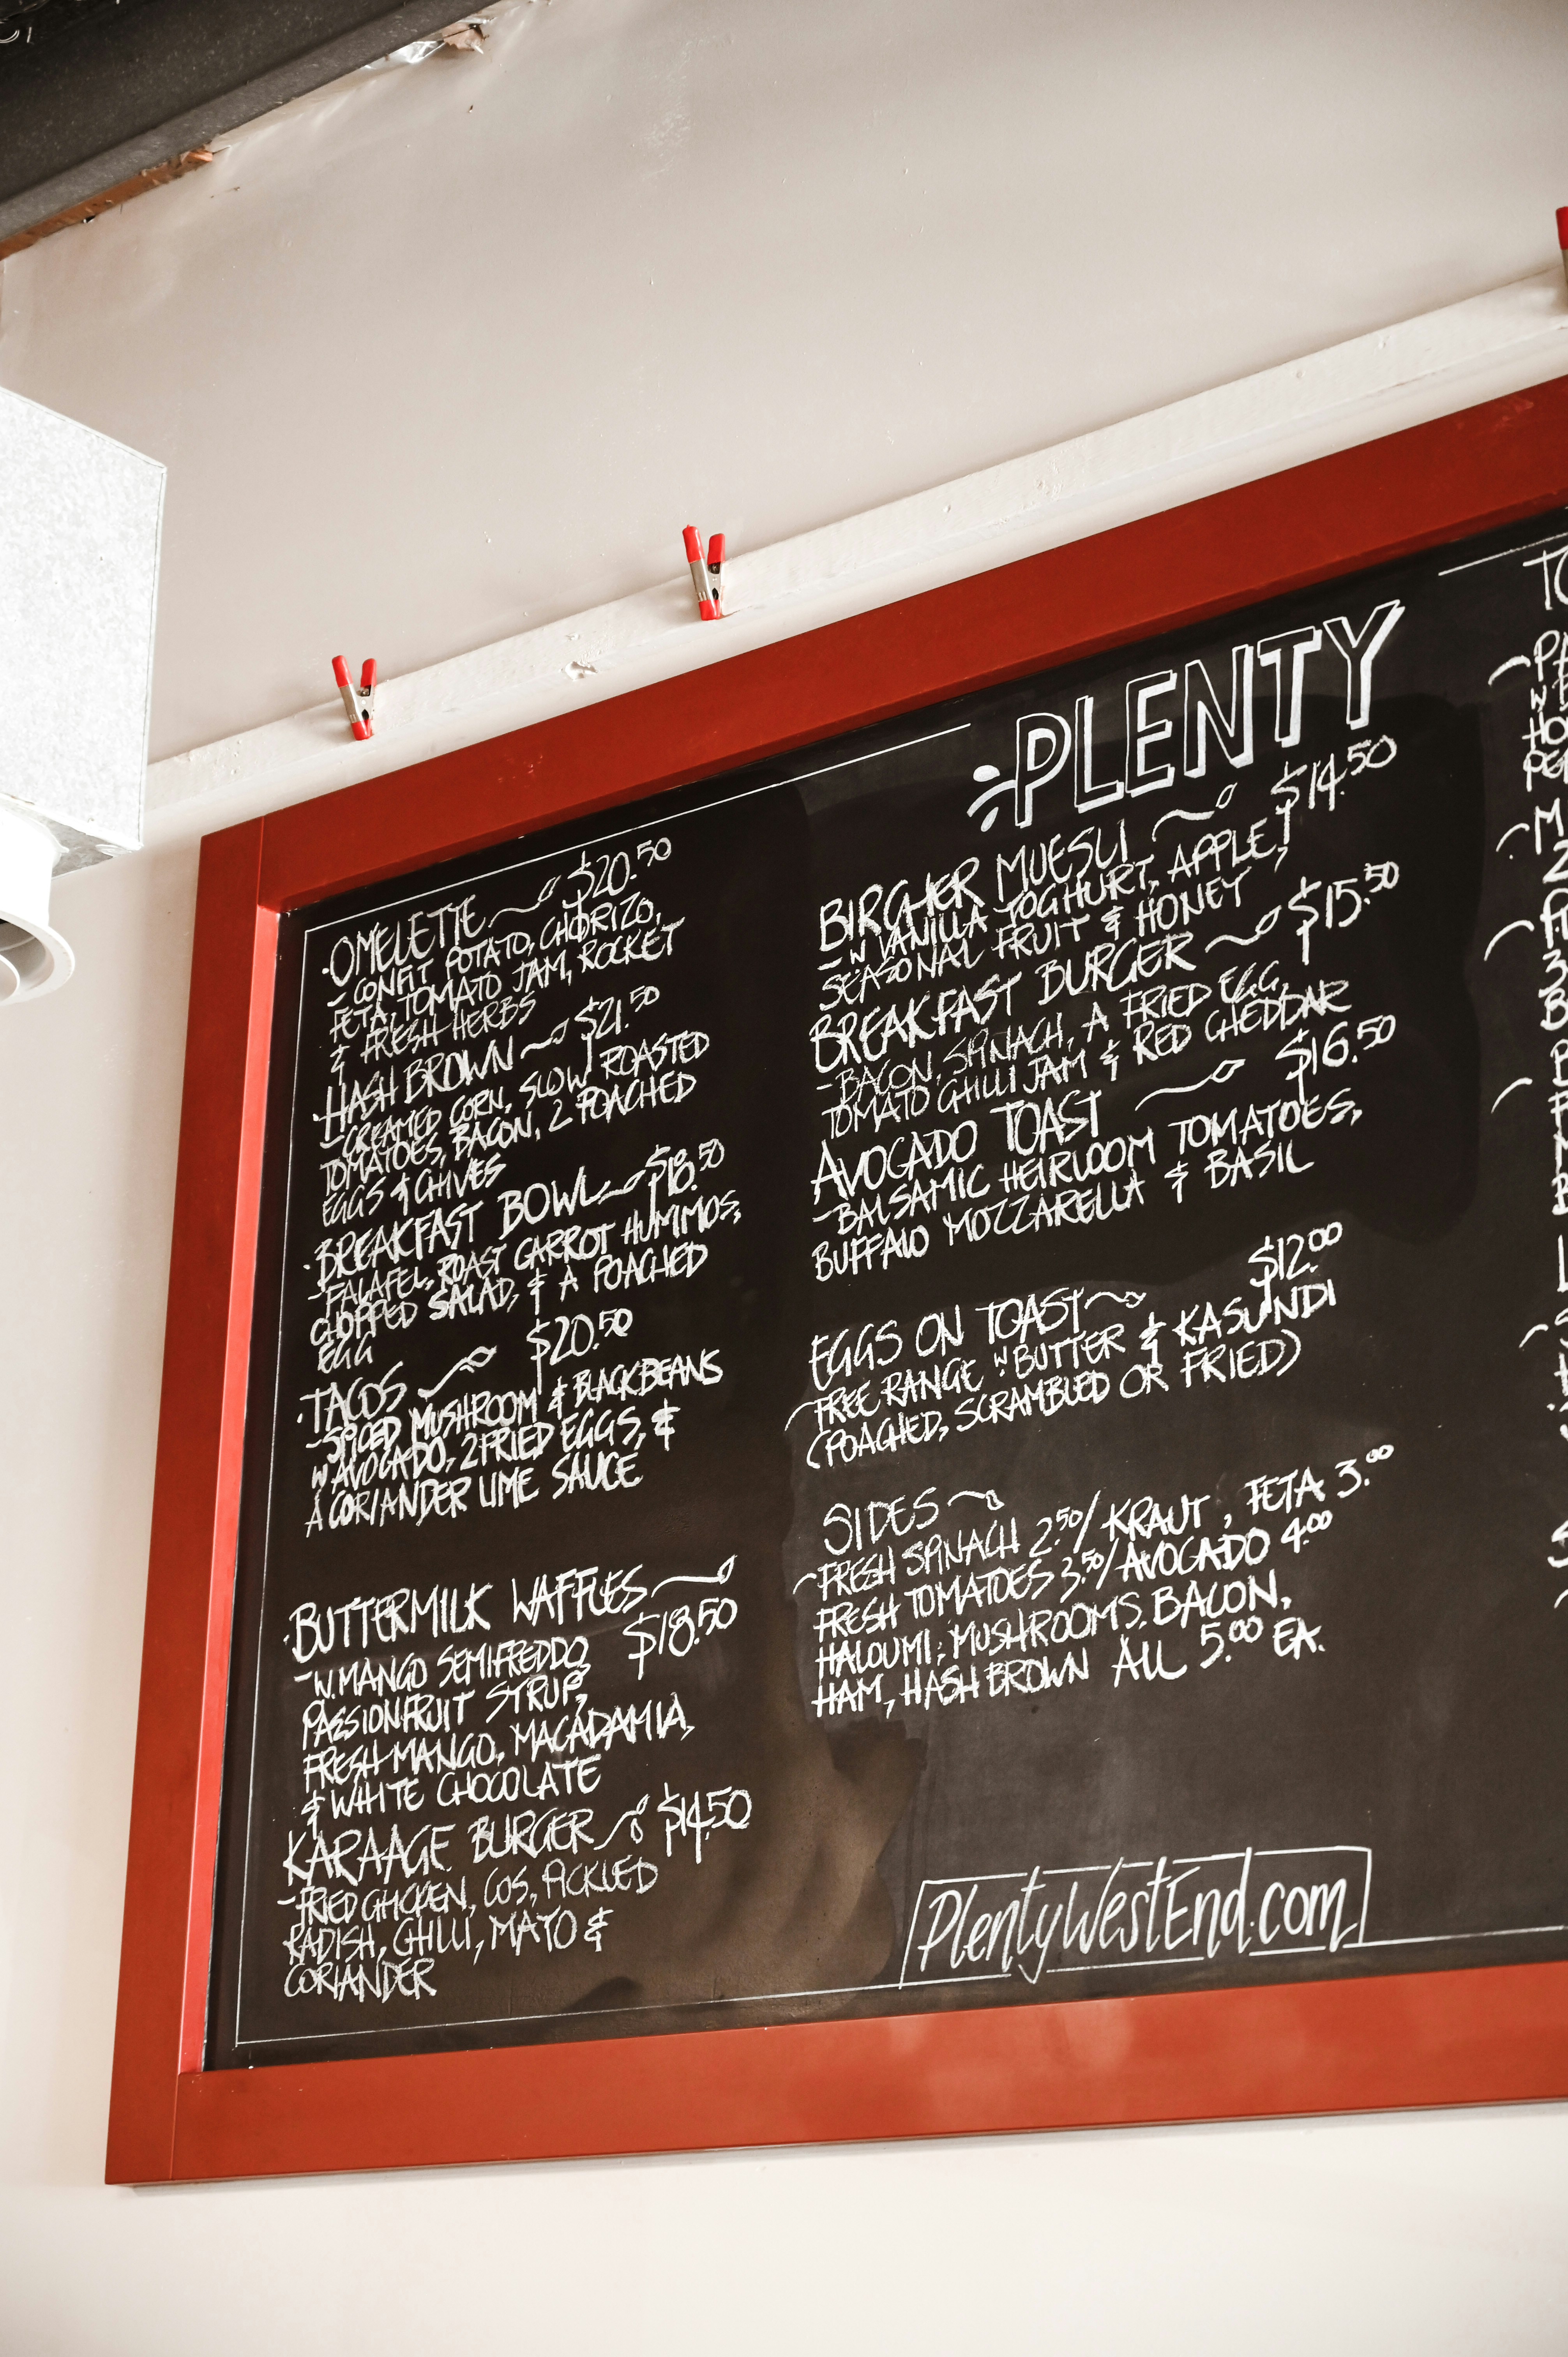 PLENTY
·OMELETTE $20.50
- CONFIT POTATO, CHORIZO,
FETA, TOMATO JAM, ROCKET
& FRESH HERBS
·HASH BROWN $21.50
- CREAMED CORN, SLOW ROASTED
TOMATOES, BACON, 2 POACHED
EGGS & CHIVES
·BREAKFAST BOWL $18.50
- FALAFEL, ROAST CARROT HUMMOS,
CHOPPED SALAD, & A POACHED
EGG
·TACOS $20.50
- SPICED MUSHROOM & BLACKBEANS
W AVOCADO, 2 FRIED EGGS, &
A CORIANDER LIME SAUCE
·BUTTERMILK WAFFLES
$18.50
- W. MANGO SEMIFREDDO,
PASSIONFRUIT SYRUP,
FRESH MANGO, MACADAMIA,
& WHITE CHOCOLATE
KARAAGE BURGER $14.50
- FRIED CHICKEN, COS, PICKLED
RADISH, CHILLI, MAYO &
CORIANDER
BIRCHER MUESLI $14.50
- W VANILLA YOGHURT, APPLE,
SEASONAL FRUIT & HONEY
BREAKFAST BURGER $15.50
- BACON, SPINACH, A FRIED EGG,
TOMATO CHILLI JAM & RED CHEDDAR
AVOCADO TOAST $16.50
- BALSAMIC HEIRLOOM TOMATOES,
BUFFALO MOZZARELLA & BASIL
EGGS ON TOAST $12.00
- FREE RANGE W BUTTER & KASUNDI
(POACHED, SCRAMBLED OR FRIED)
SIDES
- FRESH SPINACH 2.50/ KRAUT, FETA 3.00
FRESH TOMATOES 3.50/ AVOCADO 4.00
HALOUMI, MUSHROOMS, BACON,
HAM, HASH BROWN ALL 5.00 EA.
PlentyWestEnd.com